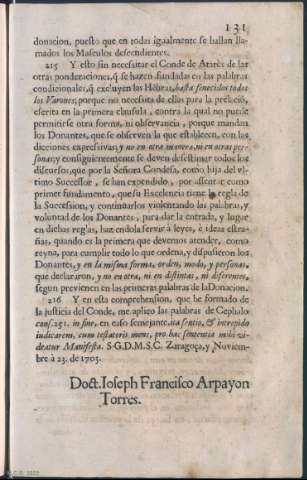 131
donacion, puesto que en todas igualmente se hallan lla-
mados los Masculos descendientes.
215 Y esto sin necesitar el Conde de Atarès de las
otras ponderaciones, q̃ se hazen fundadas en las palabras
condicionales, q̃ excluyen las Hembras, hasta fenecidos todos
los Varones; porque no necessita de ellas para la
escrita en la primera clausula, contra la qual no puede
permitirse otra forma, ni observancia, porque mandan
los Donantes, que se observen la que establecen, con las
dicciones expressivas, y no en otra manera, ni en otras per-
sonas; y consiguientemente se deven desestimar todos los
discursos, que por la Señora Condesa, como hija del vl-
timo Successor, se han expendido, por assentar como
primer fundamento, que su Excelencia tiene la regla de
la Sucession, y continuarlos violentando las palabras, y
voluntad de los Donantes, para dar la entrada, y lugar
en dichas reglas, haziendola servir à leyes, è ideas estra-
ñas, quando es la primera que devemos atender, como
reyna, para cumplir todo lo que ordena, y dispusieron los
Donantes, y en la misma forma, orden, modo, y personas,
que declararon, y no en otra, ni en distintas, ni diferentes,
segun previenen en las primeras palabras de la Donacion.
216 Y en esta comprehension, que he formado de
la justicia del Conde, me aplico las palabras de Cephalo
cons. 251. in fine, en caso semejante, ita sentio, & intrepidè
iudicarem, cum testatoris mens, pro hac sententia mihi vi-
deatur Manifesta. S.G.D.M.S.C. Zaragoça, y Noviem-
bre à 23. de 1703.
Doct. Ioseph Francisco Arpayon
Torres.